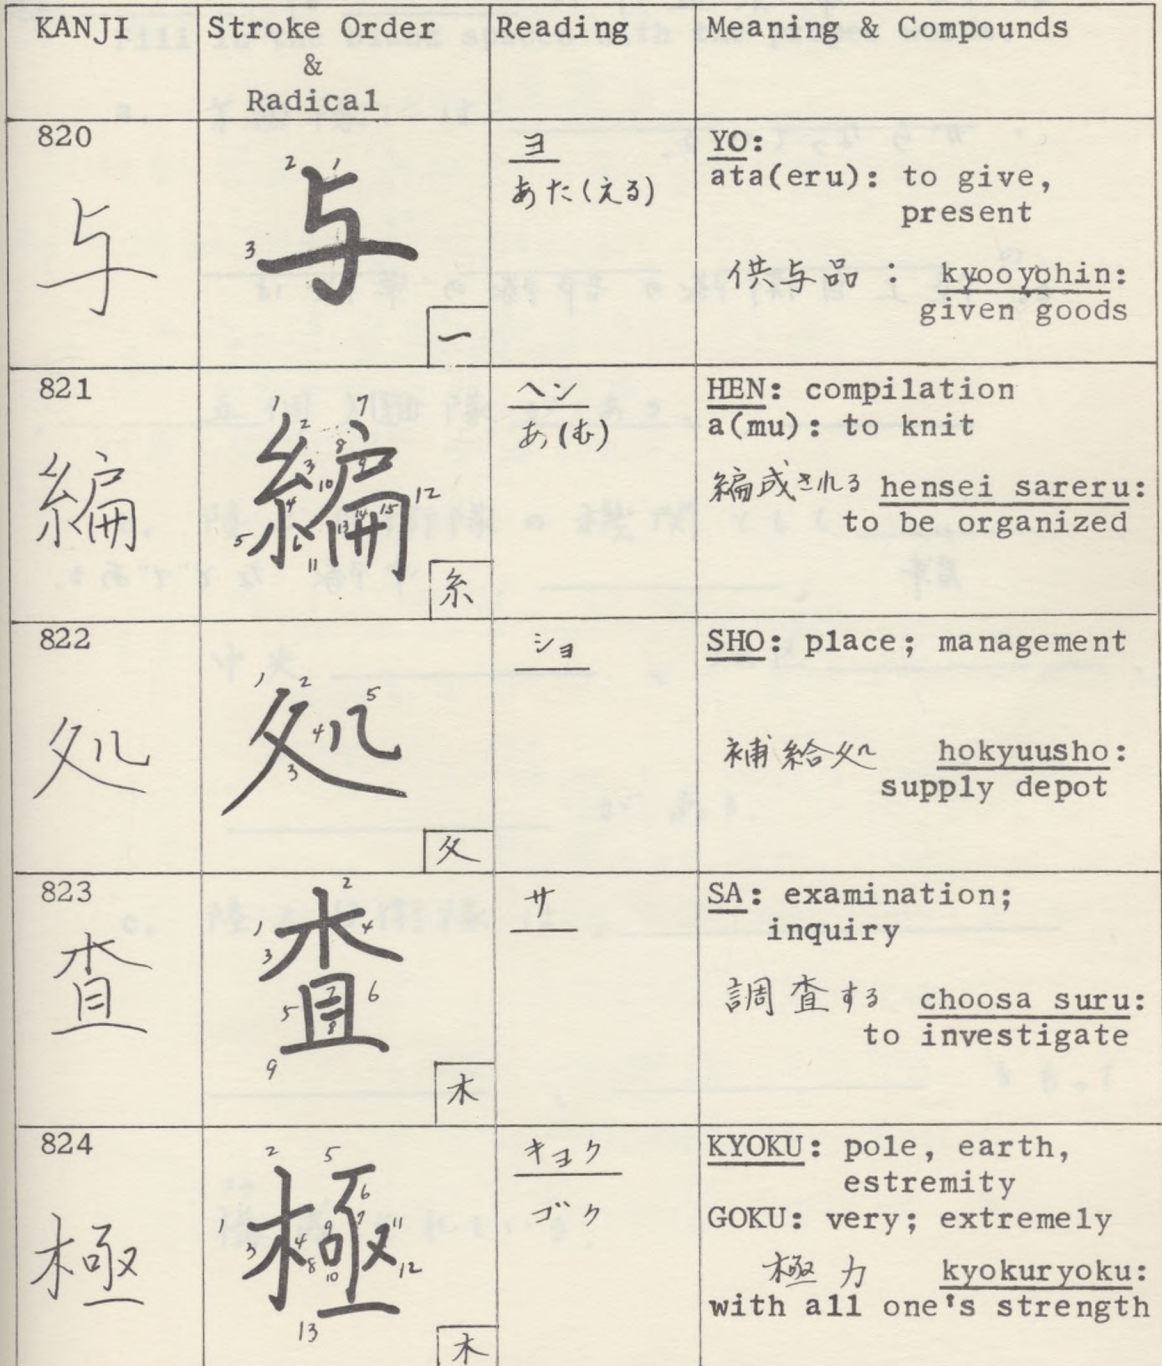 KANJI
Stroke Order
&
Radical
Reading
Meaning & Compounds
820
与
2 1
3
与
一
ヨ
あた(える)
YO:
ata(eru): to give,
present
供与品 : kyooyohin:
given goods
821
編
1 2 3 4 5 6 7 8 9 10 11 12 13 14 15
編
糸
ヘン
あ(む)
HEN: compilation
a(mu): to knit
編成される hensei sareru:
to be organized
822
処
1 2 3 4 5
処
夂
ショ
SHO: place; management
補給処 hokyuusho:
supply depot
823
査
1 2 3 4 5 6 7 8 9
査
木
サ
SA: examination;
inquiry
調査する choosa suru:
to investigate
824
極
1 2 3 4 5 6 7 8 9 10 11 12 13
極
木
キョク
ゴク
KYOKU: pole, earth,
estremity
GOKU: very; extremely
極力 kyokuryoku:
with all one's strength